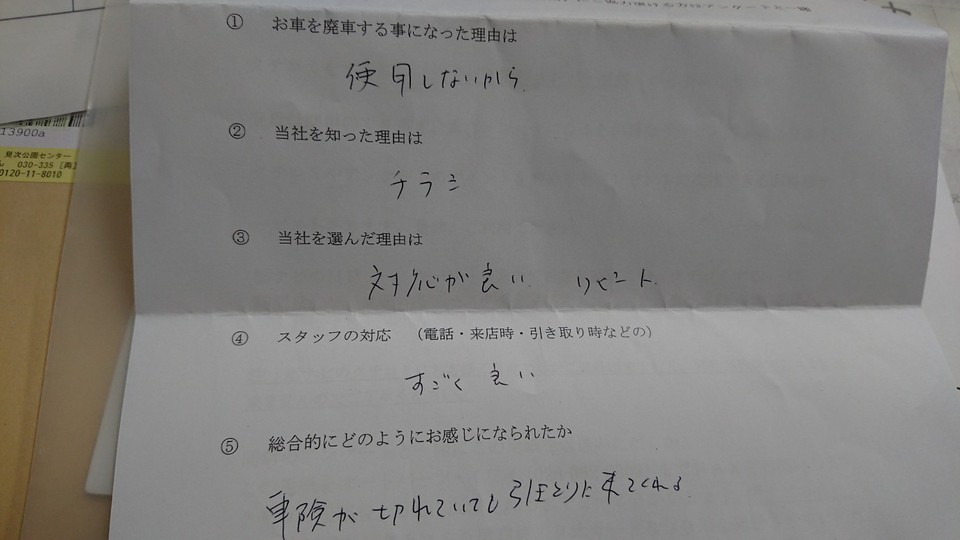 ① お車を廃車する事になった理由は
使用しないから
② 当社を知った理由は
チラシ
③ 当社を選んだ理由は
対応が良い リピート
④ スタッフの対応 （電話・来店時・引き取り時などの）
すごく良い
⑤ 総合的にどのようにお感じになられたか
車険が切れていても引きとりに来てくれる
13900a
見次公園センター
030-335 [両]
0120-11-8010